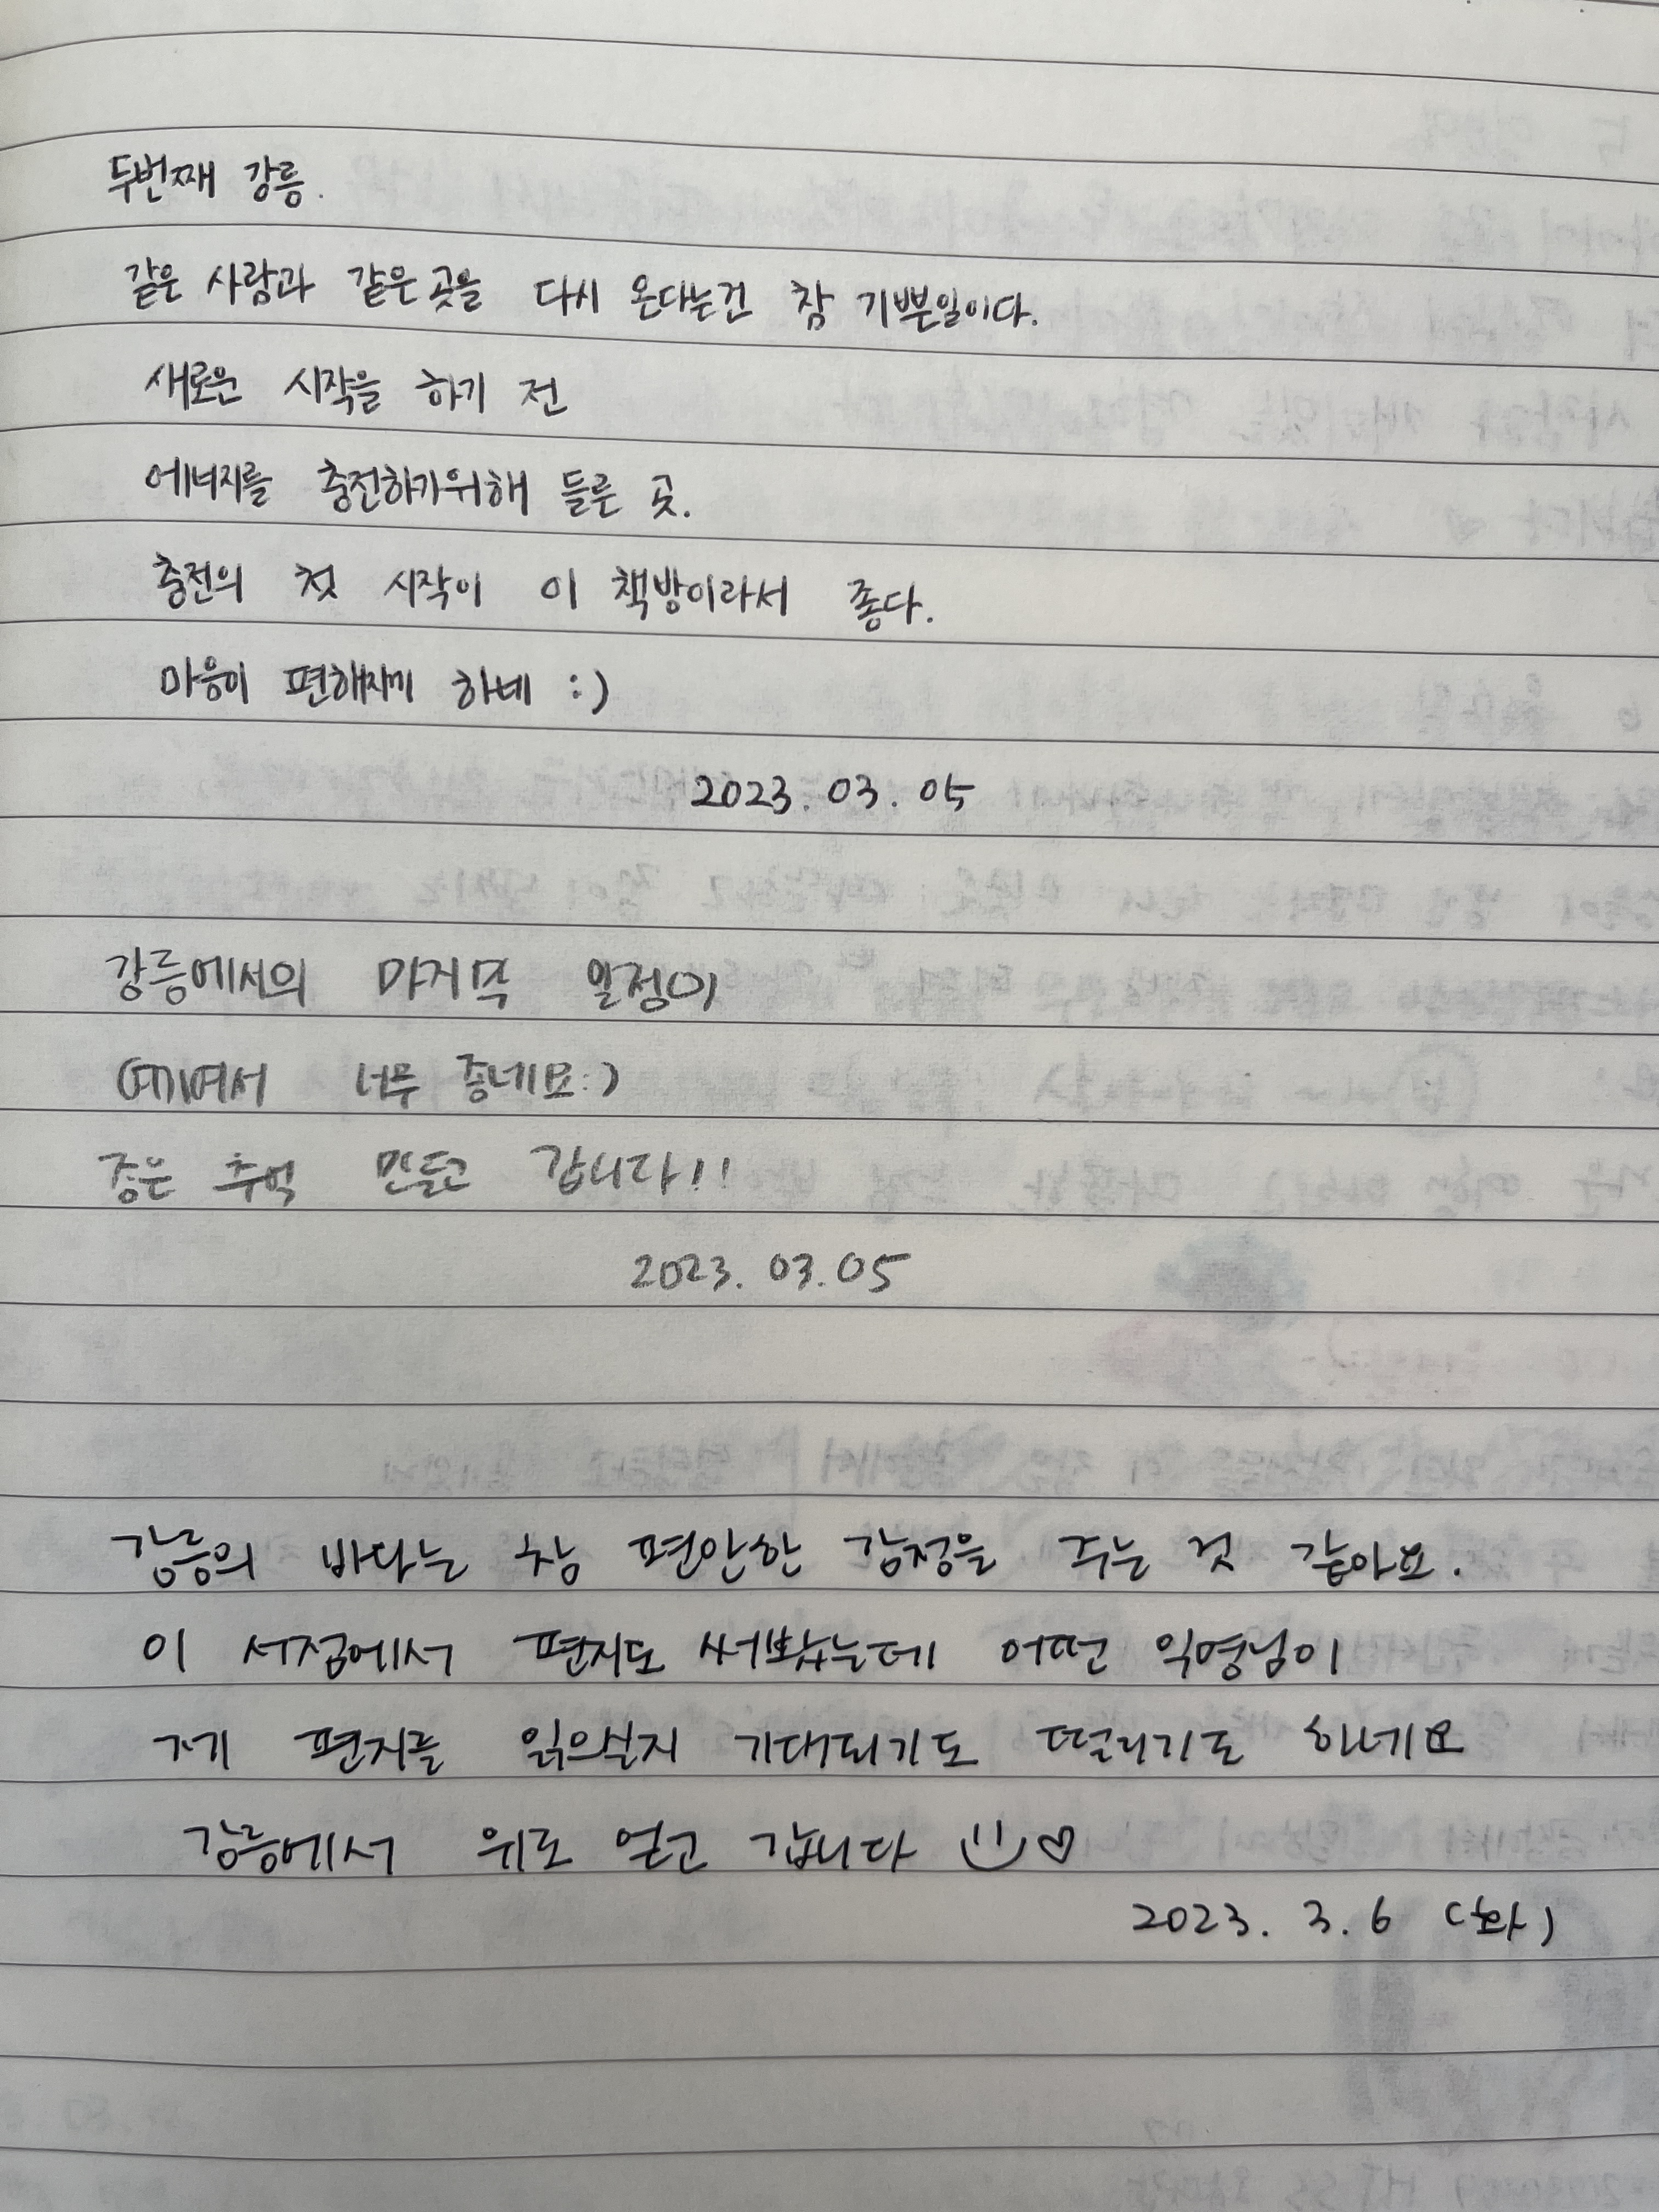 두번째 강릉.
같은 사람과 같은 곳을 다시 온다는건 참 기쁜일이다.
새로운 시작을 하기 전
에너지를 충전하기위해 들른 곳.
충전의 첫 시작이 이 책방이라서 좋다.
마음이 편해지게 하네 :)
2023. 03. 05
강릉에서의 마지막 일정이
여기여서 너무 좋네요:)
좋은 추억 만들고 갑니다!!
2023. 03. 05
강릉의 바다는 참 편안한 감정을 주는 것 같아요.
이 서점에서 편지도 써봤는데 어떤 익명님이
제 편지를 읽으실지 기대되기도 떨리기도 하네요
강릉에서 위로 얻고 갑니다
2023. 3. 6 (화)